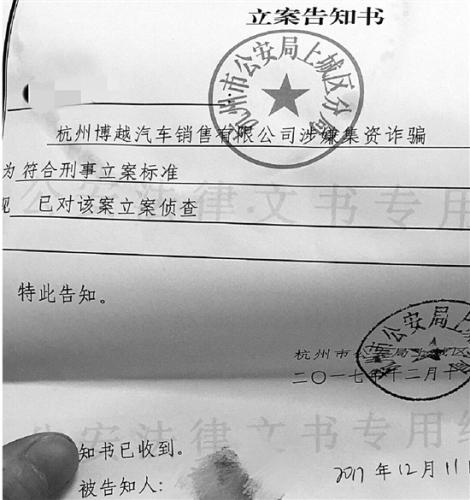 立案告知书
杭州市公安局上城区分局
杭州博越汽车销售有限公司涉嫌集资诈骗
为 符合刑事立案标准
现 已对该案立案侦查
公安法律文书专用
特此告知。
公安局上
杭州市公安局上城区
二〇一七年十二月十
公安法律文书专用纸
知书已收到。
被告知人:
2017年12月11日